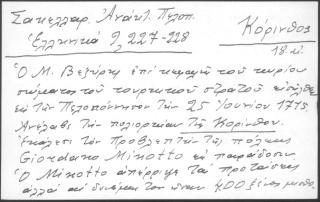 Σακελλαρ. Ἀνάκτ. Πελοπ.
Ἑλληνικά 9, 227-228
Κόρινθος
18. αἰ.
Ὁ Μ. Βεζύρης ἐπί κεφαλῆς τοῦ κυρίου
σώματος τοῦ τουρκικοῦ στρατοῦ εἰσῆλθε
εἰς τήν Πελοπόννησον τήν 25 Ἰουνίου 1715
Ἀνέλαβε τήν πολιορκίαν τῆς Κορίνθου.
Ἐκάλεσε τόν Προβλεπτήν τῆς πόλεως
Giordano Minotto εἰς παράδοσιν
Ὁ Minotto ἀπέρριψε τάς προτάσεις
ἀλλά αἱ δυνάμεις του ἦσαν 400 ξένοι μισθο.